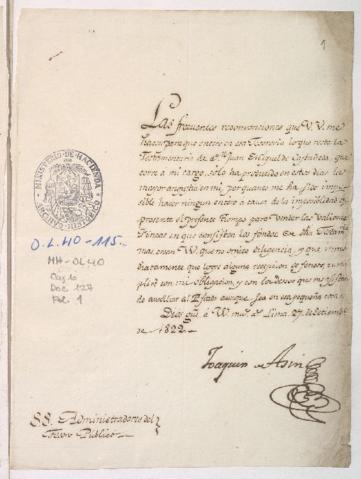 1
Las frecuentes reconvenciones que V.V. me
hacen para que entere en esa Tesorería lo que resta la
Testamentaría de d.n Juan Miguel de Castañeda, que
corre a mi cargo, solo ha producido en estos dias la
mayor angustia en mi, por quanto me ha sido impo-
sible hacer ningun entero a causa de la imposibilidad q.e
presenta el presente tiempo para vender las valiosas
Fincas en que consisten los fondos de dha Testam.ria
mas, crean VV. que no omito diligencia, y que inme-
diatamente que logre alguna
con mi obligacion, y con los deseos que me asisten
de auxiliar al Estado aunque sea en una pequeña
Dios gue. a VV. m.s a.s Lima 27 de Setiembre
de 1822.
Joaquin de Asin
SS. Administradores del
Tesoro Publico
MINISTERIO DE HACIENDA
ARCHIVO HISTORICO
O.L.40-115-
MH-OL40
Caj. 10
Doc 127
Fol. 1